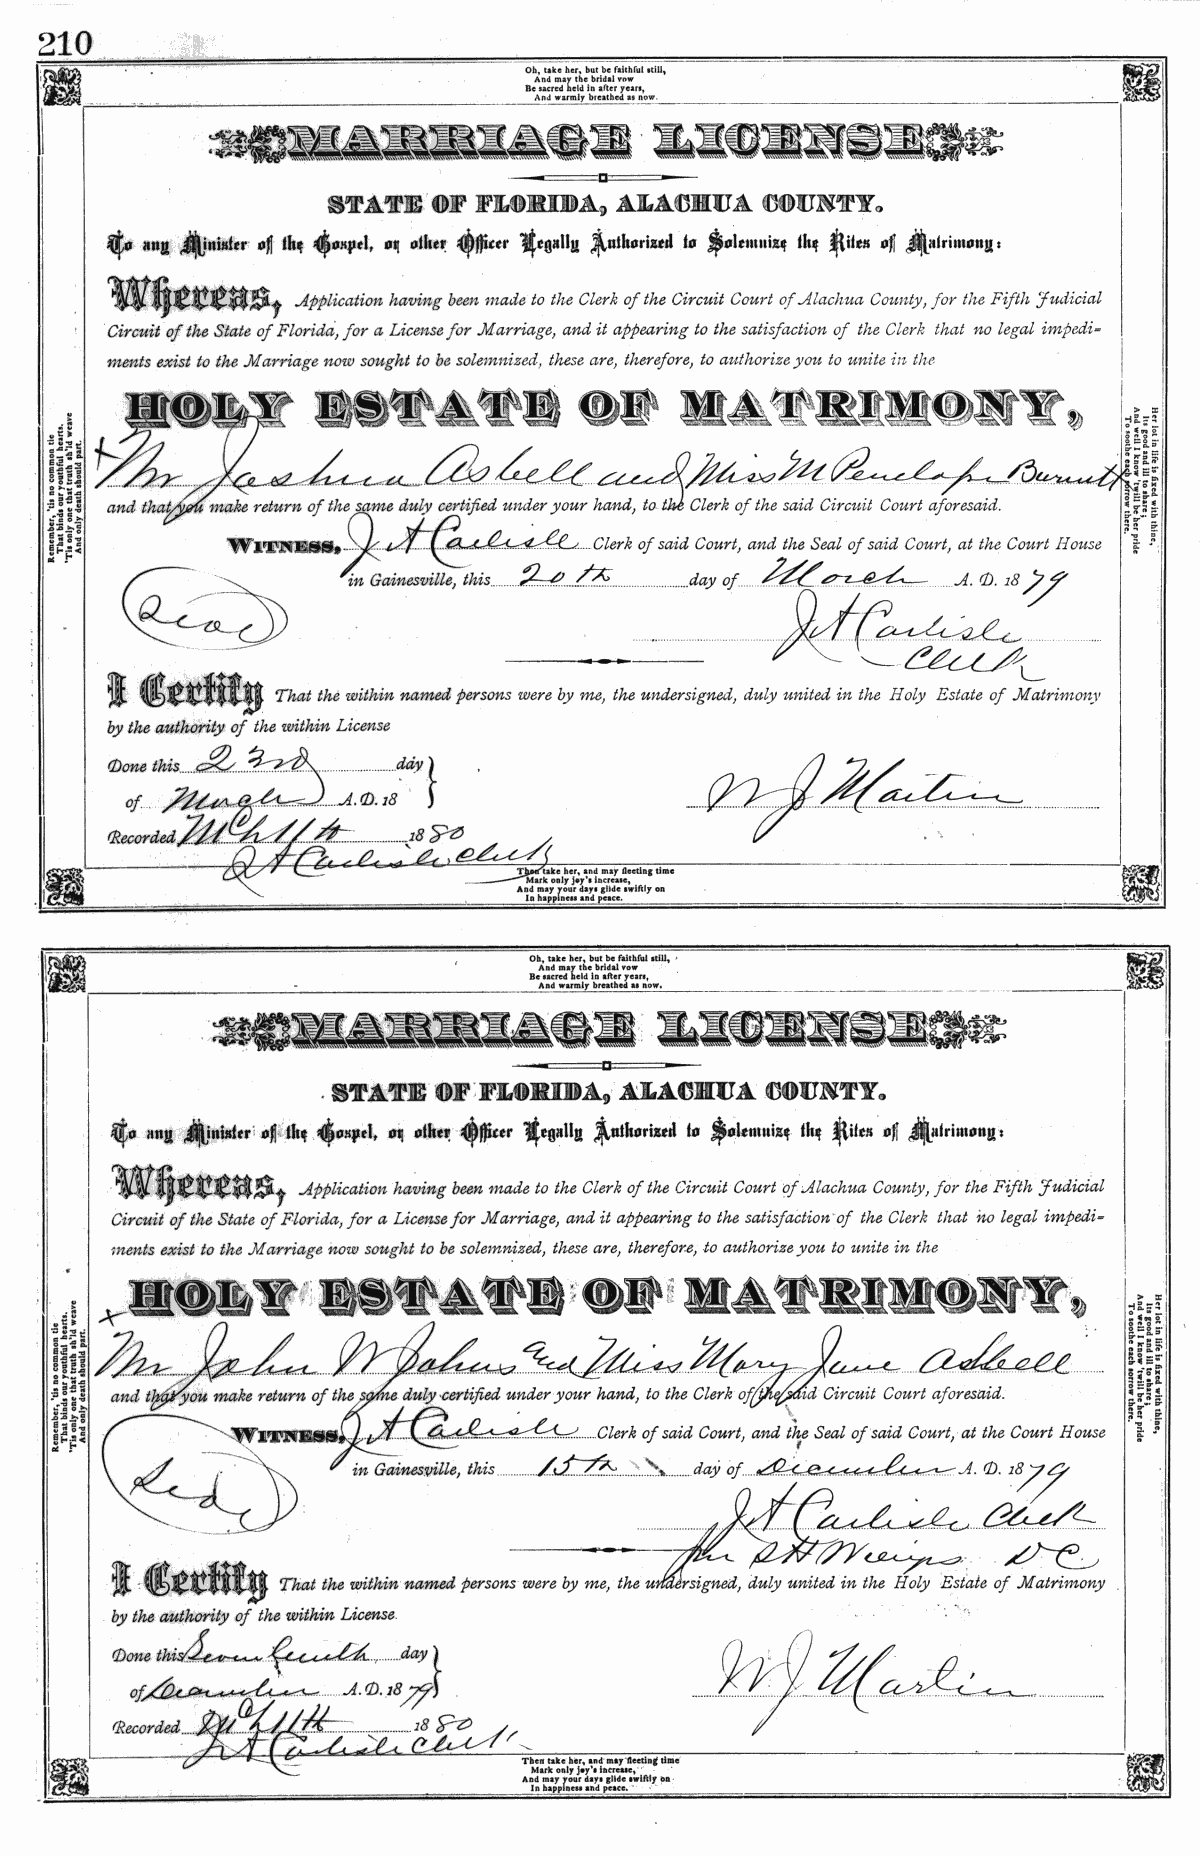 210
Oh, take her, but be faithful still,
And may the bridal vow
Be sacred held in after years,
And warmly breathed as now.
MARRIAGE LICENSE
STATE OF FLORIDA, ALACHUA COUNTY.
To any Minister of the Gospel, or other Officer Legally Authorized to Solemnize the Rites of Matrimony:
Whereas, Application having been made to the Clerk of the Circuit Court of Alachua County, for the Fifth Judicial
Circuit of the State of Florida, for a License for Marriage, and it appearing to the satisfaction of the Clerk that no legal impedi-
ments exist to the Marriage now sought to be solemnized, these are, therefore, to authorize you to unite in the
HOLY ESTATE OF MATRIMONY,
Mr Joshua Asbell and Miss M Penelope Burnett
and that you make return of the same duly certified under your hand, to the Clerk of the said Circuit Court aforesaid.
WITNESS, J A Carlisle Clerk of said Court, and the Seal of said Court, at the Court House
in Gainesville, this 20th day of March A. D. 1879
Seal
J A Carlisle
Clerk
I Certify That the within named persons were by me, the undersigned, duly united in the Holy Estate of Matrimony
by the authority of the within License
Done this 23rd day
of March A. D. 18
W J Martin
Recorded Mch 11th 1880
J A Carlisle Clerk
Then take her, and may fleeting time
Mark only joy's increase,
And may your days glide swiftly on
In happiness and peace.
Remember, 'tis no common tie
That binds our youthful hearts.
'Tis only one that truth sh'ld weave
And only death should part.
Her lot in life is fixed with thine,
Its good and ill to share;
And well I know 'twill be her pride
To soothe each sorrow there.
Oh, take her, but be faithful still,
And may the bridal vow
Be sacred held in after years,
And warmly breathed as now.
MARRIAGE LICENSE
STATE OF FLORIDA, ALACHUA COUNTY.
To any Minister of the Gospel, or other Officer Legally Authorized to Solemnize the Rites of Matrimony:
Whereas, Application having been made to the Clerk of the Circuit Court of Alachua County, for the Fifth Judicial
Circuit of the State of Florida, for a License for Marriage, and it appearing to the satisfaction of the Clerk that no legal impedi-
ments exist to the Marriage now sought to be solemnized, these are, therefore, to authorize you to unite in the
HOLY ESTATE OF MATRIMONY,
Mr John W Johns and Miss Mary Jane Asbell
and that you make return of the same duly certified under your hand, to the Clerk of the said Circuit Court aforesaid.
WITNESS, J A Carlisle Clerk of said Court, and the Seal of said Court, at the Court House
in Gainesville, this 15th day of December A. D. 1879
Seal
J A Carlisle Clerk
per S H D C
I Certify That the within named persons were by me, the undersigned, duly united in the Holy Estate of Matrimony
by the authority of the within License.
Done this Seventeenth day
of December A. D. 1879
W J Martin
Recorded Mch 11th 1880
J A Carlisle Clerk
Then take her, and may fleeting time
Mark only joy's increase,
And may your days glide swiftly on
In happiness and peace.
Remember, 'tis no common tie
That binds our youthful hearts.
'Tis only one that truth sh'ld weave
And only death should part.
Her lot in life is fixed with thine,
Its good and ill to share;
And well I know 'twill be her pride
To soothe each sorrow there.